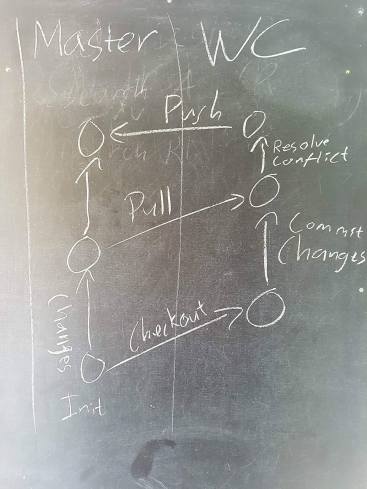 Master WC
Push
Resolve
Conflict
Pull
Commit
Changes
Changes
Checkout
Init